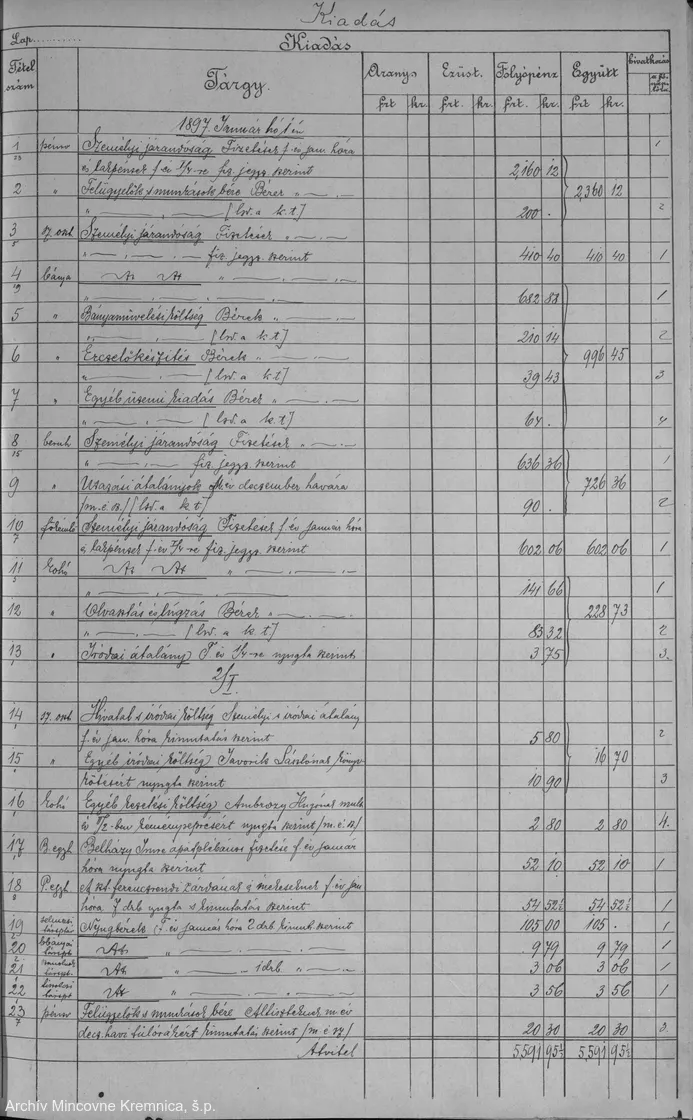 Kiadás
Lap
Kiadás
Tétel szám Tárgy. Arany Ezüst. Folyópénz Együtt hivatkozás
frt. kr. frt. kr. frt. kr. frt. kr.
1897. Január hóban
1 pénv Személyi járandóság Fizetések f. év jan. hóra
és lakpénzek f. év 1/4-re fiz. jegyz. szerint 2,160 12 1
2 " Felügyelők s munkások bére Bérek " 2,360 12
" [lsd. a k. t] 200 . 2
3 Személyi járandóság Fizetések "
5 " fiz. jegyz. szerint 410 40 410 40 1
4 bánya "
19 " 682 88 1
5 " Bányamüvelési költség Bérek "
" [lsd. a k. t] 210 14 2
6 " Ércelőkészítés Bérek " 996 45
" [lsd. a k. t] 39 43 3
7 " Egyéb üzemi kiadás Bérek "
" [lsd. a k. t] 64 . 4
8 Személyi járandóság Fizetések "
15 " fiz. jegyz. szerint 636 36 1
9 " Utazási átalányok év deczember havára 726 36
[lsd. a k. t] 90 . 2
10 Személyi járandóság Fizetések f. év január hóra
7 s lakpénzek f. év 1/4-re fiz. jegyz. szerint 602 06 602 06 1
11 Kohó "
5 " 141 66 1
12 " Olvasztás és lúgzás Bérek " 228 73
" [lsd. a k. t] 83 32 2
13 " Irodai átalány f. év 1/4-re nyugta szerint 3 75 3.
2/I.
14 Hivatal s irodai költség Személyi s irodai átalány
f. év jan. hóra kimutatás szerint 5 80 2
15 " Egyéb irodai költség Javorik Lászlónak könyv
kötésért nyugta szerint 10 90 16 70 3
16 Kohó Egyéb kezelési költség Ambrozy Hugónak mult
év kéményseprésért nyugta szerint 2 80 2 80 4.
17 B. egyh Belházy Imre apátplebános fizetése f. év január
hóra nyugta szerint 52 10 52 10 1
18 P. egyh A szt. ferenczrendi zárdának f. év jan
hóra 7 drb nyugta s kimutatás szerint 54 52½ 54 52½ 1
19 Nyugbérek f. év január hóra 2 drb kimut. szerint 105 00 105 . 1
20 " 9 79 9 79 1
21 " 1 drb 3 06 3 06 1
22 " 3 56 3 56 1
23 pénv Felügyelők s munkások bére Altiszteknek m. év
7 decz. havi túlórákért kimutatás szerint 20 30 20 30 3.
Átvitel 5,591 95½ 5,591 95½
Archív Mincovne Kremnica, š.p.